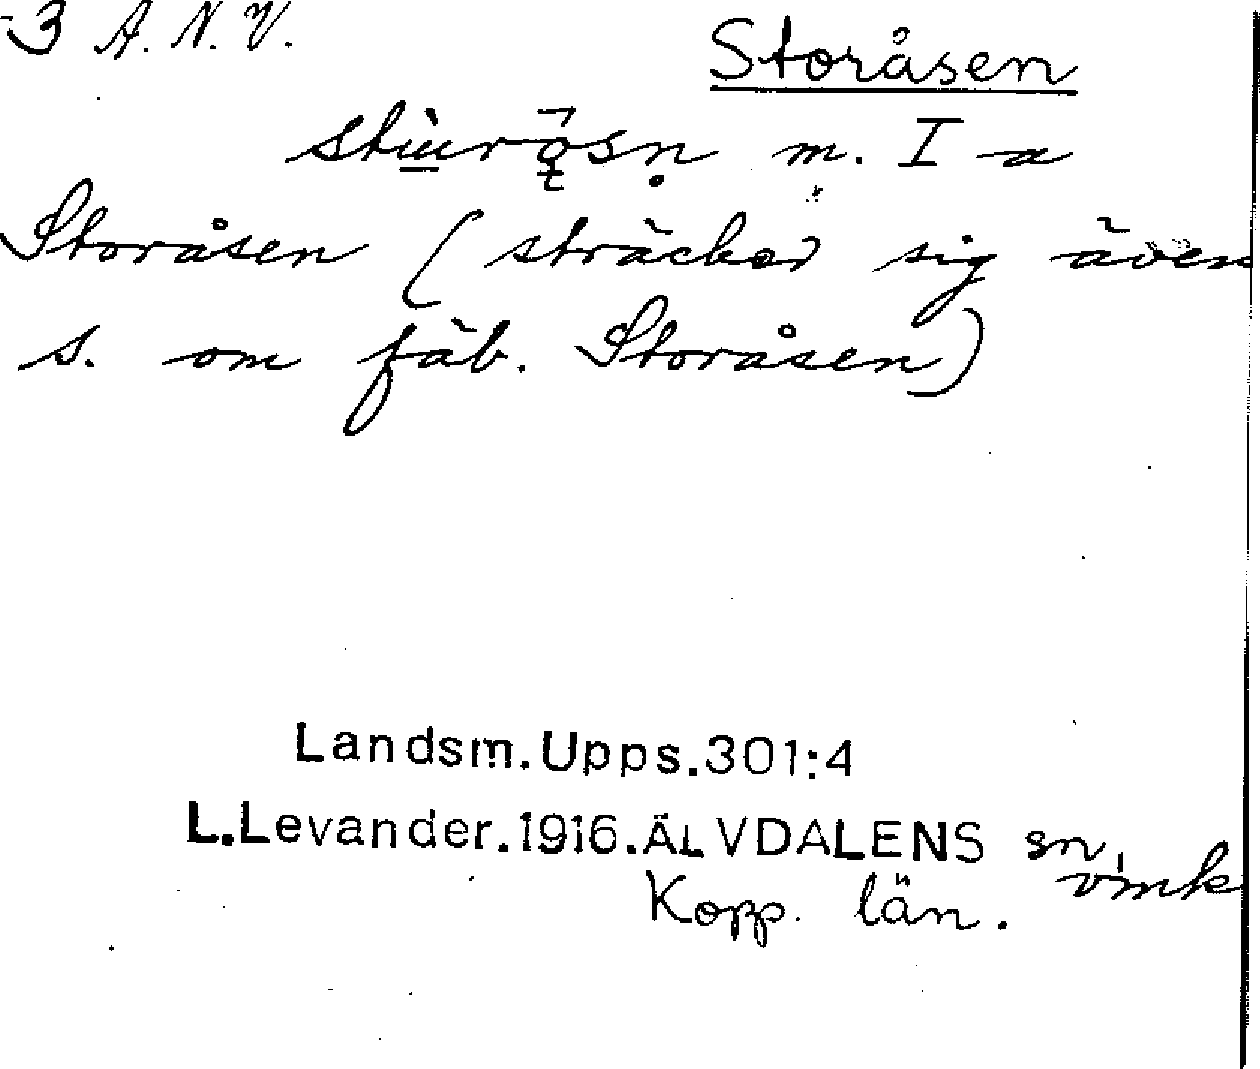 3 A. N. V.
Storåsen
m. I a
Storåsen (sträcker sig även
s. om fäb. Storåsen)
Landsm. Upps. 301:4
L. Levander. 1916. ÄLVDALENS sn,
Kopp. län.